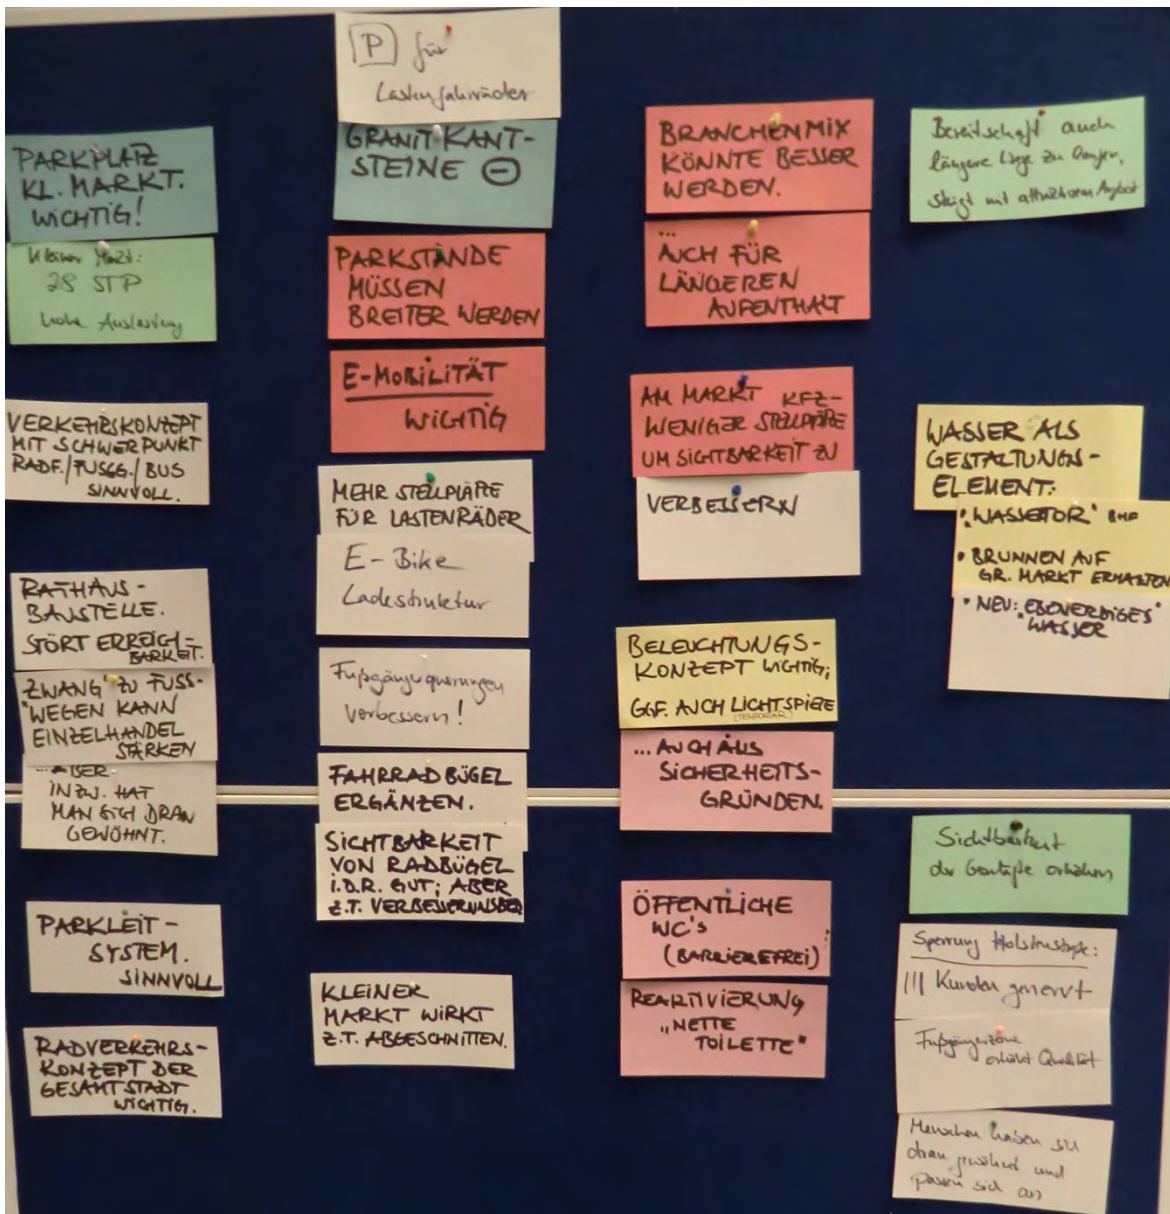 PARKPLATZ
KL. MARKT.
WICHTIG!
Kleiner Markt:
28 STP
hohe Auslastung
VERKEHRSKONZEPT
MIT SCHWERPUNKT
RADF./FUSSG./BUS
SINNVOLL.
RATHAUS-
BAUSTELLE.
STÖRT ERREICH-
BARKEIT.
ZWANG ZU FUSS-
WEGEN KANN
EINZELHANDEL
STÄRKEN
...ABER
INZW. HAT
MAN SICH DRAN
GEWÖHNT.
PARKLEIT-
SYSTEM.
SINNVOLL
RADVERKEHRS-
KONZEPT DER
GESAMTSTADT
WICHTIG.
P für
Lastenfahrräder
GRANITKANT-
STEINE ⊖
PARKSTÄNDE
MÜSSEN
BREITER WERDEN
E-MOBILITÄT
WICHTIG
MEHR STELLPLÄTZE
FÜR LASTENRÄDER
E-Bike
Ladestruktur
Fußgängerquerungen
verbessern!
FAHRRADBÜGEL
ERGÄNZEN.
SICHTBARKEIT
VON RADBÜGEL
I.D.R. GUT; ABER
Z.T. VERBESSERUNGSBED
KLEINER
MARKT WIRKT
Z.T. ABGESCHNITTEN.
BRANCHENMIX
KÖNNTE BESSER
WERDEN.
...
AUCH FÜR
LÄNGEREN
AUFENTHALT
AM MARKT KFZ-
WENIGER STELLPLÄTZE
UM SICHTBARKEIT ZU
VERBESSERN
BELEUCHTUNGS-
KONZEPT WICHTIG;
GGF. AUCH LICHTSPIELE
(TEMPORÄR)
...AUCH AUS
SICHERHEITS-
GRÜNDEN.
ÖFFENTLICHE
WC's
(BARRIEREFREI)
REAKTIVIERUNG
"NETTE
TOILETTE"
Bereitschaft auch
längere Wege zu laufen,
steigt mit attraktivem Angebot
WASSER ALS
GESTALTUNGS-
ELEMENT:
• "WASSERTOR" BHF
• BRUNNEN AUF
GR. MARKT ERHALTEN
• NEU: EBENERDIGES
WASSER
Sichtbarkeit
der Geschäfte erhöhen
Sperrung Holstenstraße:
||| Kunden genervt
Fußgängerzone
erhöht Qualität
Menschen haben sich
dran gewöhnt und
passen sich an